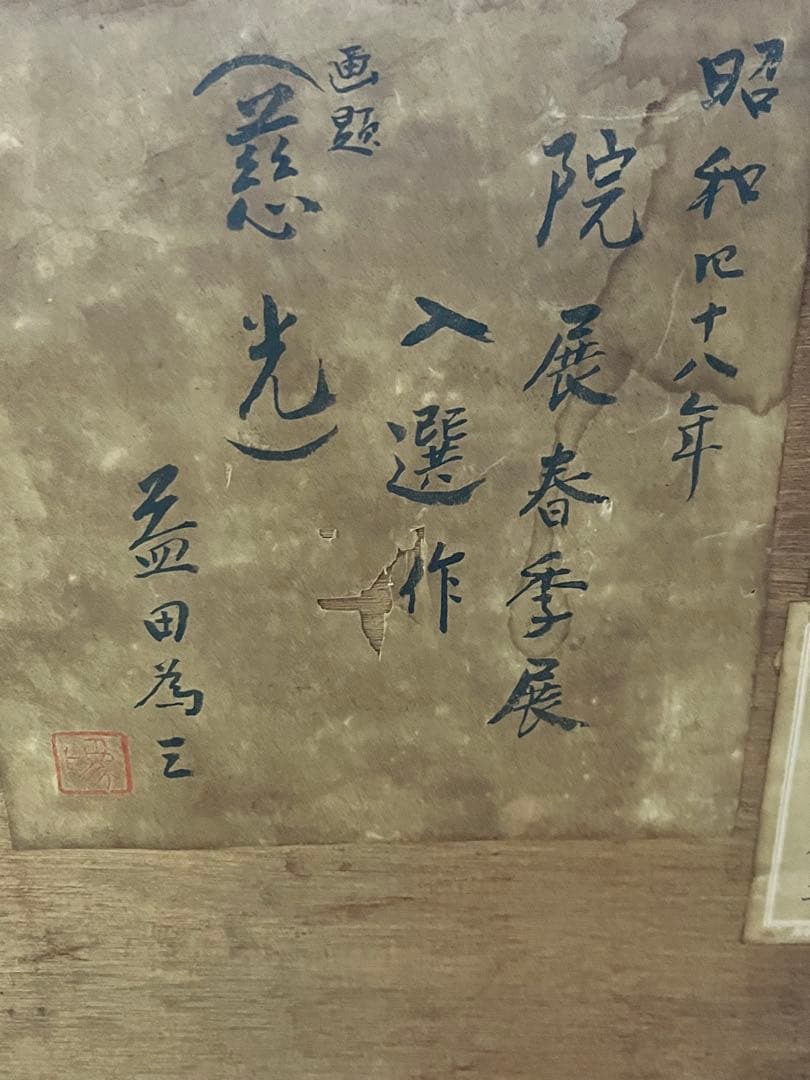 昭和四十八年
院展春季展
入選作
画題
(慈光)
益田為三